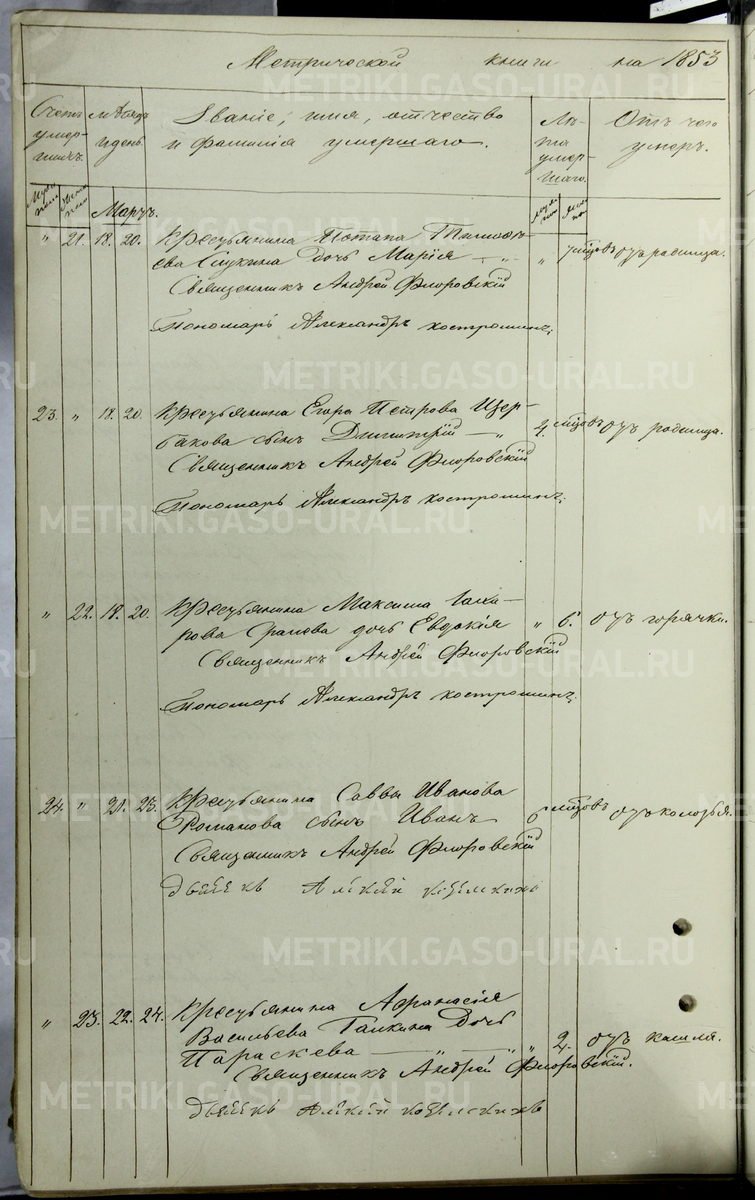 Метрической книги на 1853
Счетъ умер-шихъ. мѣсяцъ и день. Званіе, имя, отчество и фамилія умершаго. Лѣ-та умер-шаго. Отъ чего умеръ.
Мартъ.
" 21. 18. 20. Крестьянина Потапа Тимофѣ-
ева дочь Марія — " — " мѣсяцовъ отъ родимца.
Священникъ Андрей Флоровскій
Пономарь Александръ Костроминъ.
23. " 18. 20. Крестьянина Егора Петрова Щер-
бакова сынъ Димитрій — " 4. мѣсяцовъ отъ родимца.
Священникъ Андрей Флоровскій
Пономарь Александръ Костроминъ.
" 22. 18. 20. Крестьянина Максима
дочь Евдокія " 6. отъ горячки.
Священникъ Андрей Флоровскій
Пономарь Александръ Костроминъ.
24. " 21. 23. Крестьянина Саввы Иванова
Романова сынъ Иванъ — 6 мѣсяцовъ отъ колотья.
Священникъ Андрей Флоровскій
Дьячекъ Алексѣй
" 23. 22. 24. Крестьянина Афанасія
Васильева Галкина дочь
Параскева — " — " " 2. отъ кашля.
Священникъ Андрей Флоровскій.
Дьячекъ Алексѣй
METRIKI.GASO-URAL.RU